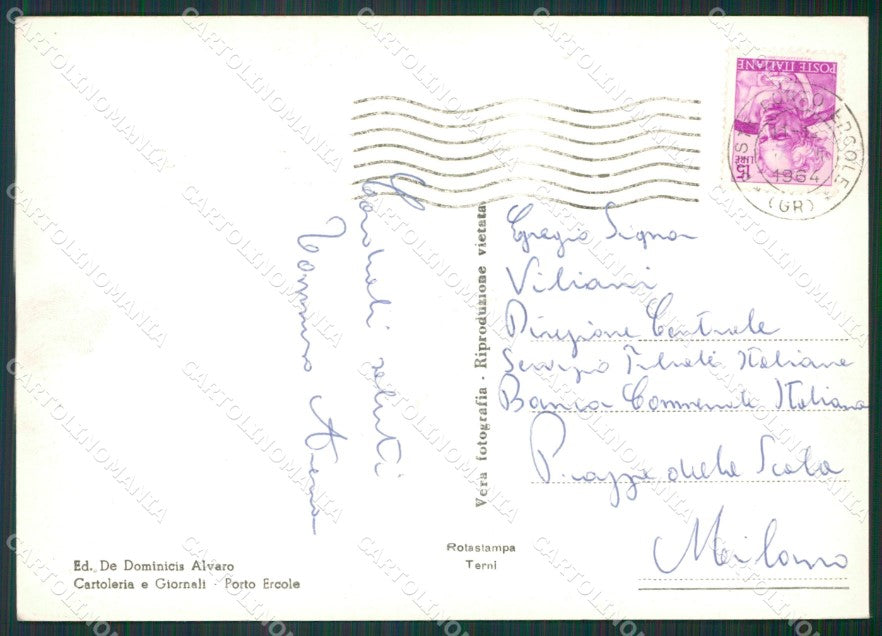 POSTE ITALIANE
LIRE 15
ERCOLE
1964
(GR)
Cordiali saluti
Tommaso
Egregio Signor
Viliani
Direzione Centrale
Servizio Filiali Italiane
Banca Commerciale Italiana
Piazza della Scala
Milano
Vera fotografia - Riproduzione vietata
Rotastampa
Terni
Ed. De Dominicis Alvaro
Cartoleria e Giornali - Porto Ercole
CARTOLINOMANIA